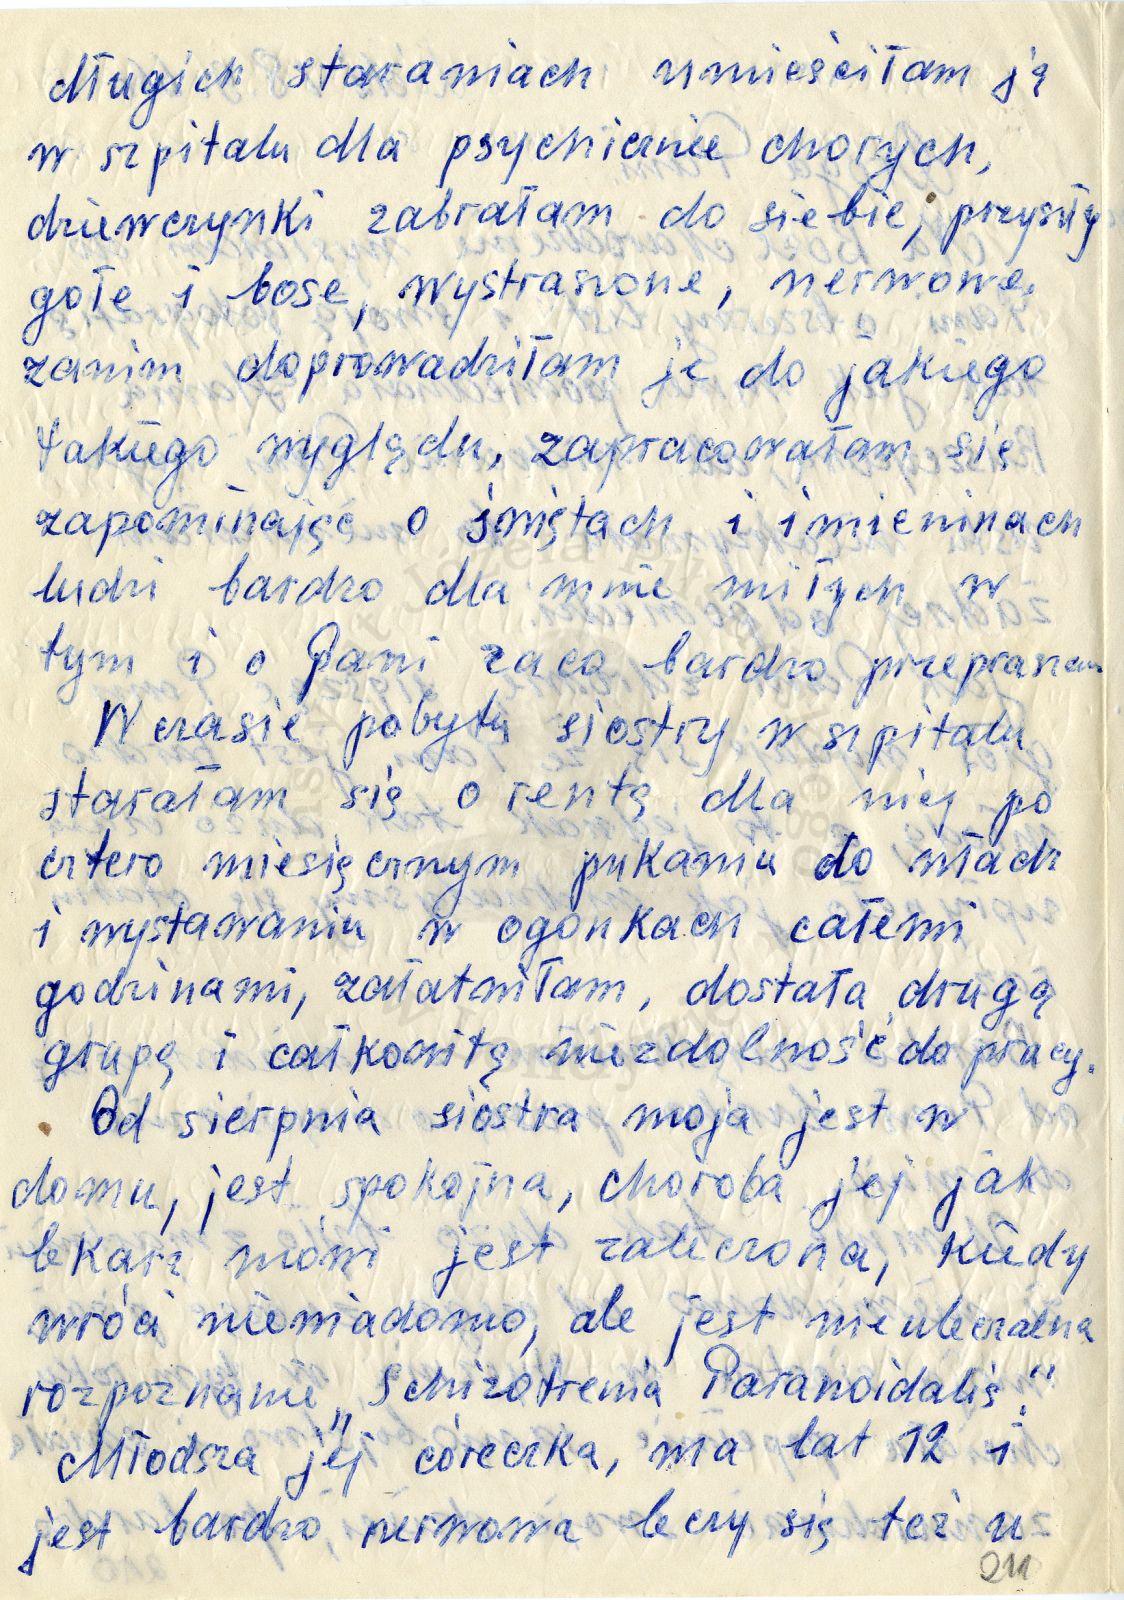 długich staraniach umieściłam ją
w szpitalu dla psychicznie chorych,
dziewczynki zabrałam do siebie, przyszły
gołe i bose, wystraszone, nerwowe,
zanim doprowadziłam je do jakiego
takiego wyglądu, zapracowałam się
zapominając o świętach i imieninach
ludzi bardzo dla mnie miłych w
tym i o Pani zaco bardzo przepraszam
W czasie pobytu siostry w szpitalu
starałam się o rentę dla niej po
cztero miesięcznym pukaniu do władz
i wystawaniu w ogonkach całemi
godzinami, załatwiłam, dostała drugą
grupę i całkowitą niezdolność do pracy.
Od sierpnia siostra moja jest w
domu, jest spokojna, choroba jej jak
lekarz mówi jest zaleczona, kiedy
wróci niewiadomo, ale jest nieuleczalna
rozpoznanie „Schizofrenia Paranoidalis".
Młodsza jej córeczka, ma lat 12 i
jest bardzo nerwowa leczy się też u
211